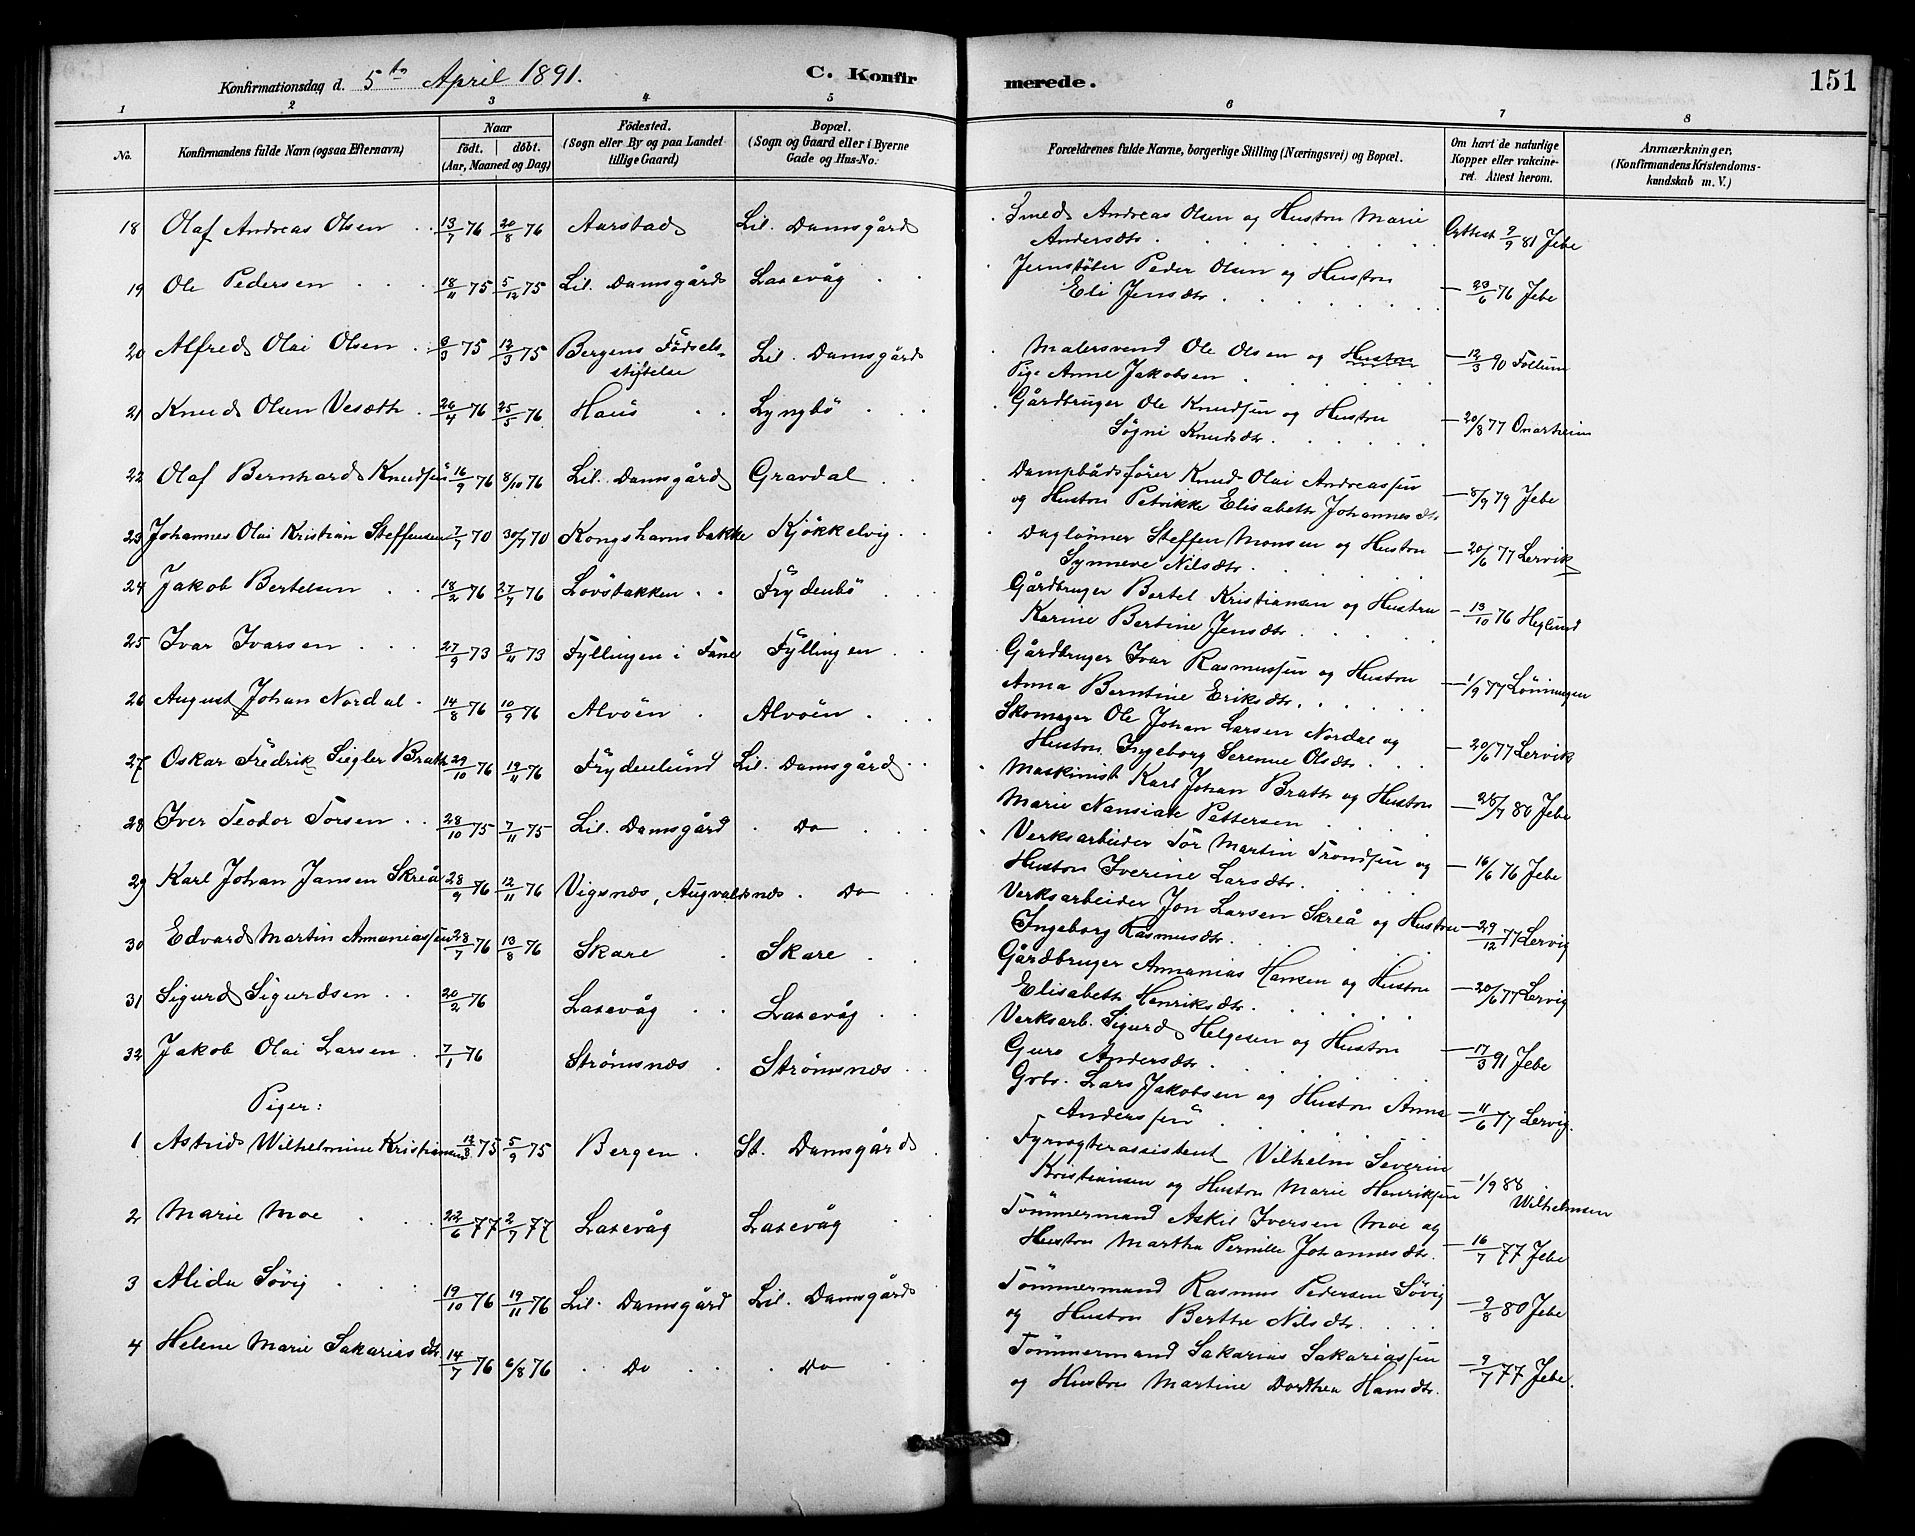 Konfirmationsdag d. 5te April 1891.
C. Konfir
merede.
151
1 2 3 4 5 6 7 8
No.
Konfirmandens fulde Navn (ogsaa Efternavn)
Naar
födt. döbt.
(Aar, Maaned og Dag)
Födested.
(Sogn eller By og paa Landet
tillige Gaard)
Bopæl.
(Sogn og Gaard eller i Byerne
Gade og Hus-No.
Forældrenes fulde Navne, borgerlige Stilling (Næringsvei) og Bopæl.
Om havt de naturlige
Kopper eller vakcine-
ret. Attest herom.
Anmærkninger,
(Konfirmandens Kristendoms-
kundskab m. V.)
18 Olaf Andreas Olsen 13/7 76 20/8 76 Aarstad Lil. Damsgård Smed Andreas Olsen og Hustru Marie
Andersdtr. Attest 9/9 81 Jebe
19 Ole Pedersen 18/11 75 5/12 75 Lil. Damsgård Laxevåg Jernstöber Peder Olsen og Hustru
Eli Jensdtr. — 23/6 76 Jebe
20 Alfred Olai Olsen 6/3 75 12/3 75 Bergens Födsels- Lil. Damsgård Malersvend Ole Olsen og Hustru
stiftelse Pige Anne Jakobsen — 12/3 90 Follum
21 Knud Olsen Vesæth 26/4 76 25/5 76 Haus Lyngbö Gårdbruger Ole Knudsen og Hustru
Sögni Knudsdtr. — 20/8 77 Onarheim
22 Olaf Bernhard Knudsen 16/9 76 8/10 76 Lil. Damsgård Gravdal Dampbådsförer Knud Olai Andreassen
og Hustru Petrikke Elisabeth Johannesdtr — 8/9 79 Jebe
23 Johannes Olai Kristian Steffensen 7/7 70 30/7 70 Kongshavnsbakke Kjökkelvig Daglönner Steffen Monsen og Hustru
Synneve Nilsdtr. — 20/6 77 Lervik
24 Jakob Bertelsen 18/2 76 27/7 76 Lövstakken Frydenbö Gårdbruger Bertel Kristiansen og Hustru
Karine Bertine Jensdtr. — 13/10 76 Heglund
25 Ivar Ivarsen 27/9 73 3/11 73 Fyllingen i Fane Fyllingen Gårdbruger Ivar Rasmussen og Hustru
Anna Berntine Eriksdtr. — 1/9 77 Lönningen
26 August Johan Nordal 14/8 76 10/9 76 Alvöen Alvöen Skomager Ole Johan Larsen Nordal og
Hustru Ingeborg Serenne Olsdtr. — 20/6 77 Lervik
27 Oskar Fredrik Siegler Brath 29/10 76 19/11 76 Frydenlund Lil. Damsgård Maskinist Karl Johan Brath og Hustru
Marie Nansiak Pettersen — 26/7 80 Jebe
28 Iver Teodor Torsen 28/10 75 7/11 75 Lil. Damsgård Do Verksarbeider Tor Martin Trondsen og
Hustru Iverine Larsdtr. — 16/6 76 Jebe
29 Karl Johan Jansen Skreå 28/9 76 12/11 76 Vigsnæs, Augvaldsnæs Do Verksarbeider Jon Larsen Skreå og Hustru
Ingeborg Rasmusdtr. — 29/12 77 Lervig
30 Edvard Martin Ammaniassen 28/7 76 13/8 76 Skare Skare Gårdbruger Ammanias Hansen og Hustru
Elisabeth Henriksdtr. — 20/6 77 Lervig
31 Sigurd Sigurdsen 20/2 76 Laxevåg Laxevåg Verksarb. Sigurd Helgesen og Hustru
Guro Andersdtr. — 17/3 91 Jebe
32 Jakob Olai Larsen 7/1 76 Strömsnæs Strömsnæs Gbr. Lars Jakobsen og Hustru Anna
Anderssen — 11/6 77 Lervig.
Piger:
1 Astrid Wilhelmine Kristiansen 13/8 75 5/9 75 Bergen St. Damsgård Fyrvogterassistent Vilhelm Severin
Kristiansen og Hustru Marie Henriksen — 1/9 88
Wilhelmsen
2 Marie Moe 22/6 77 2/7 77 Laxevåg Laxevåg Tömmermand Askil Iversen Moe og
Hustru Martha Pernille Johannesdtr. — 16/7 77 Jebe
3 Alida Sövig 19/10 76 19/11 76 Lil. Damsgård Lil. Damsgård Tömmermand Rasmus Pedersen Sövig
og Hustru Berthe Nilsdtr. — 9/8 80 Jebe
4 Helene Marie Sakariasdtr. 14/7 76 6/8 76 Do Do Tömmermand Sakarias Sakariassen
og Hustru Martine Dorthea Hansdtr. — 9/7 77 Jebe.